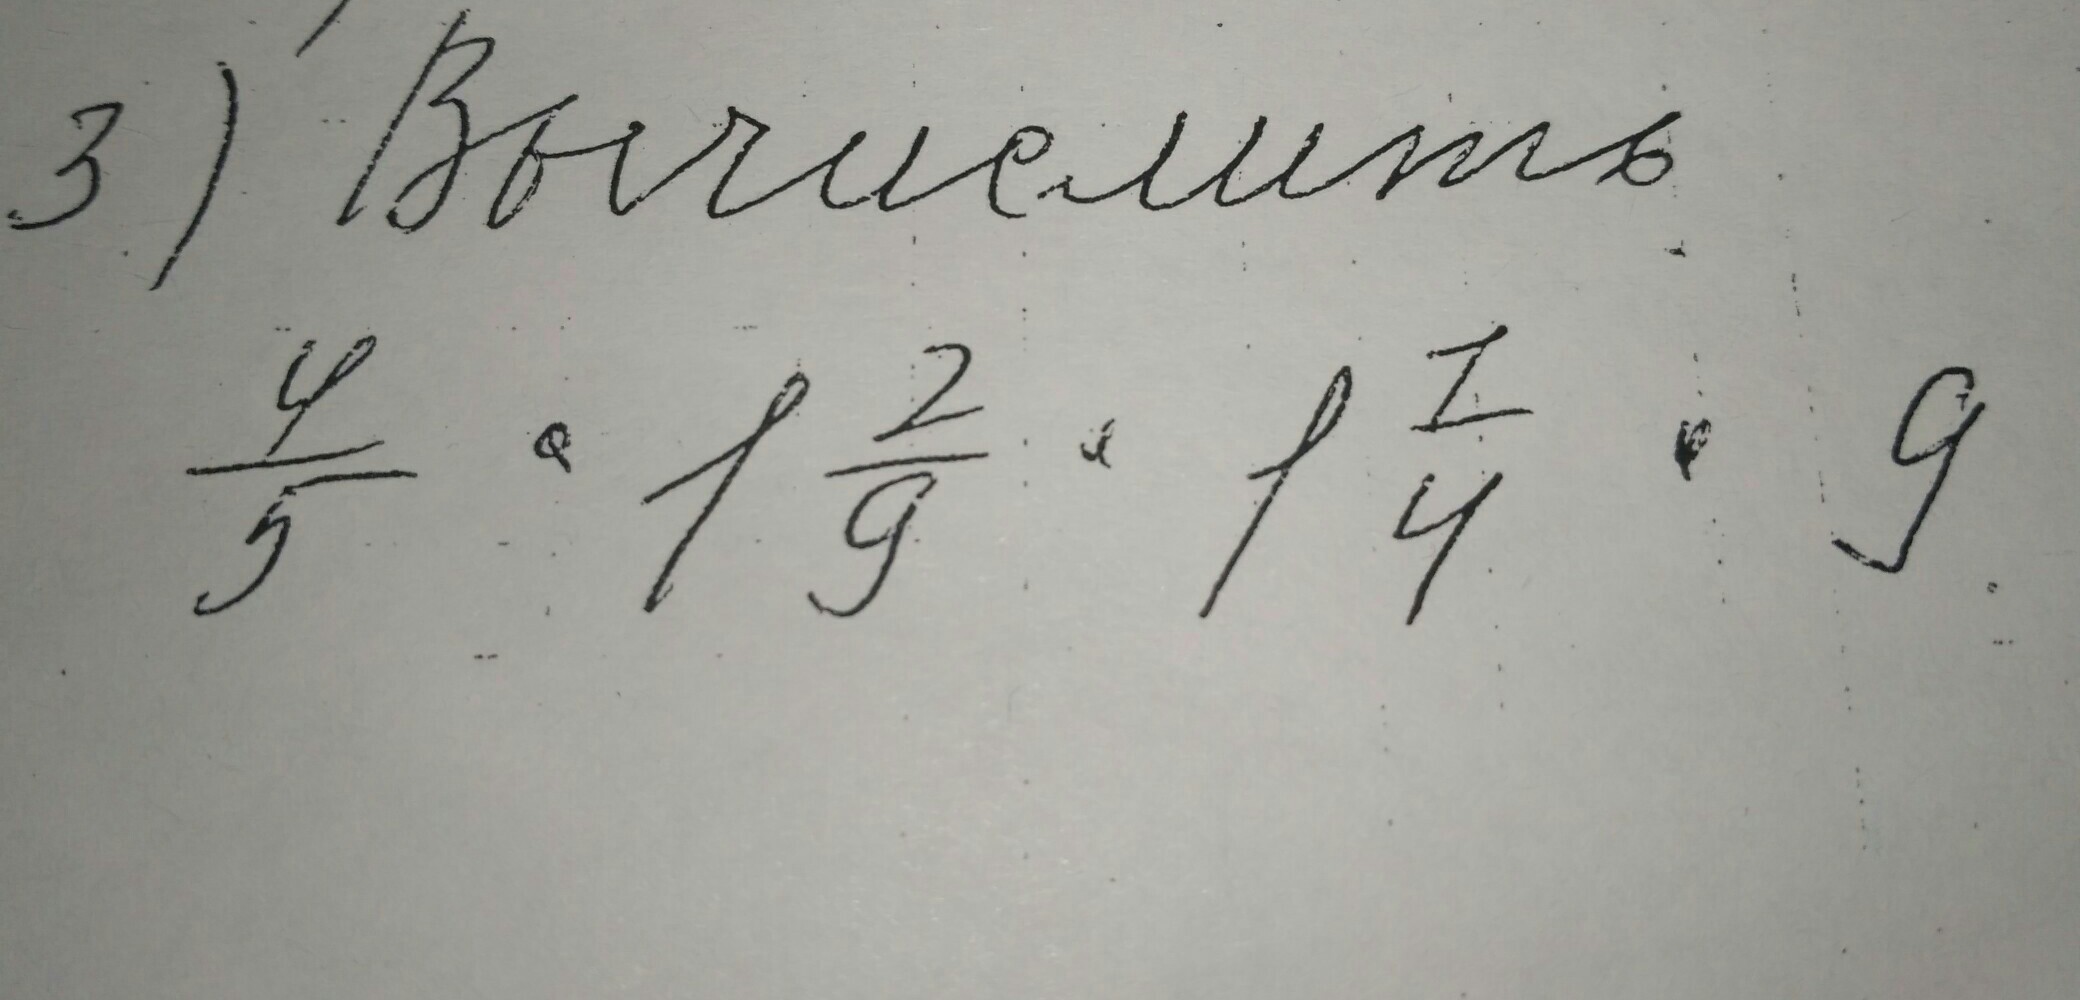 3) Вычислить
4/5 · 1 2/9 · 1 1/4 · 9